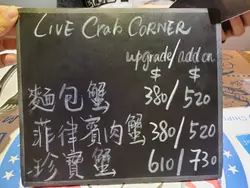 LIVE Crab CORNER
upgrade/add on
$ $
麵包蟹 380/520
菲律賓肉蟹 380/520
珍寶蟹 610/730